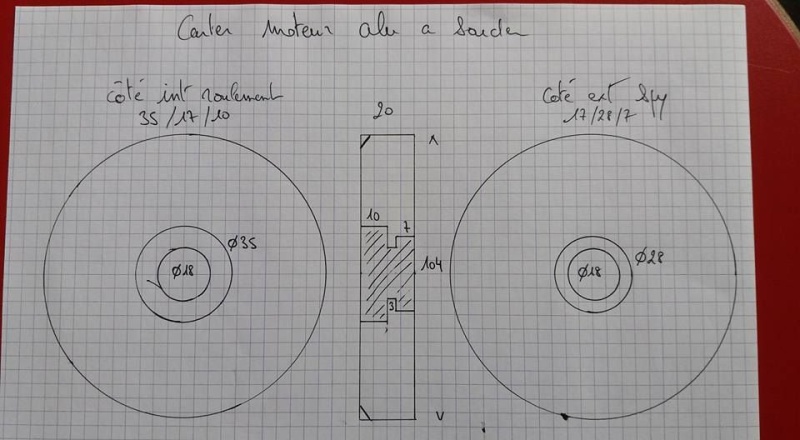 Carter moteur alu a souder
côté int roulement
35/17/10
20
Coté ext Spy
17/28/7
10
7
Ø35
Ø18
104
3
Ø28
Ø18